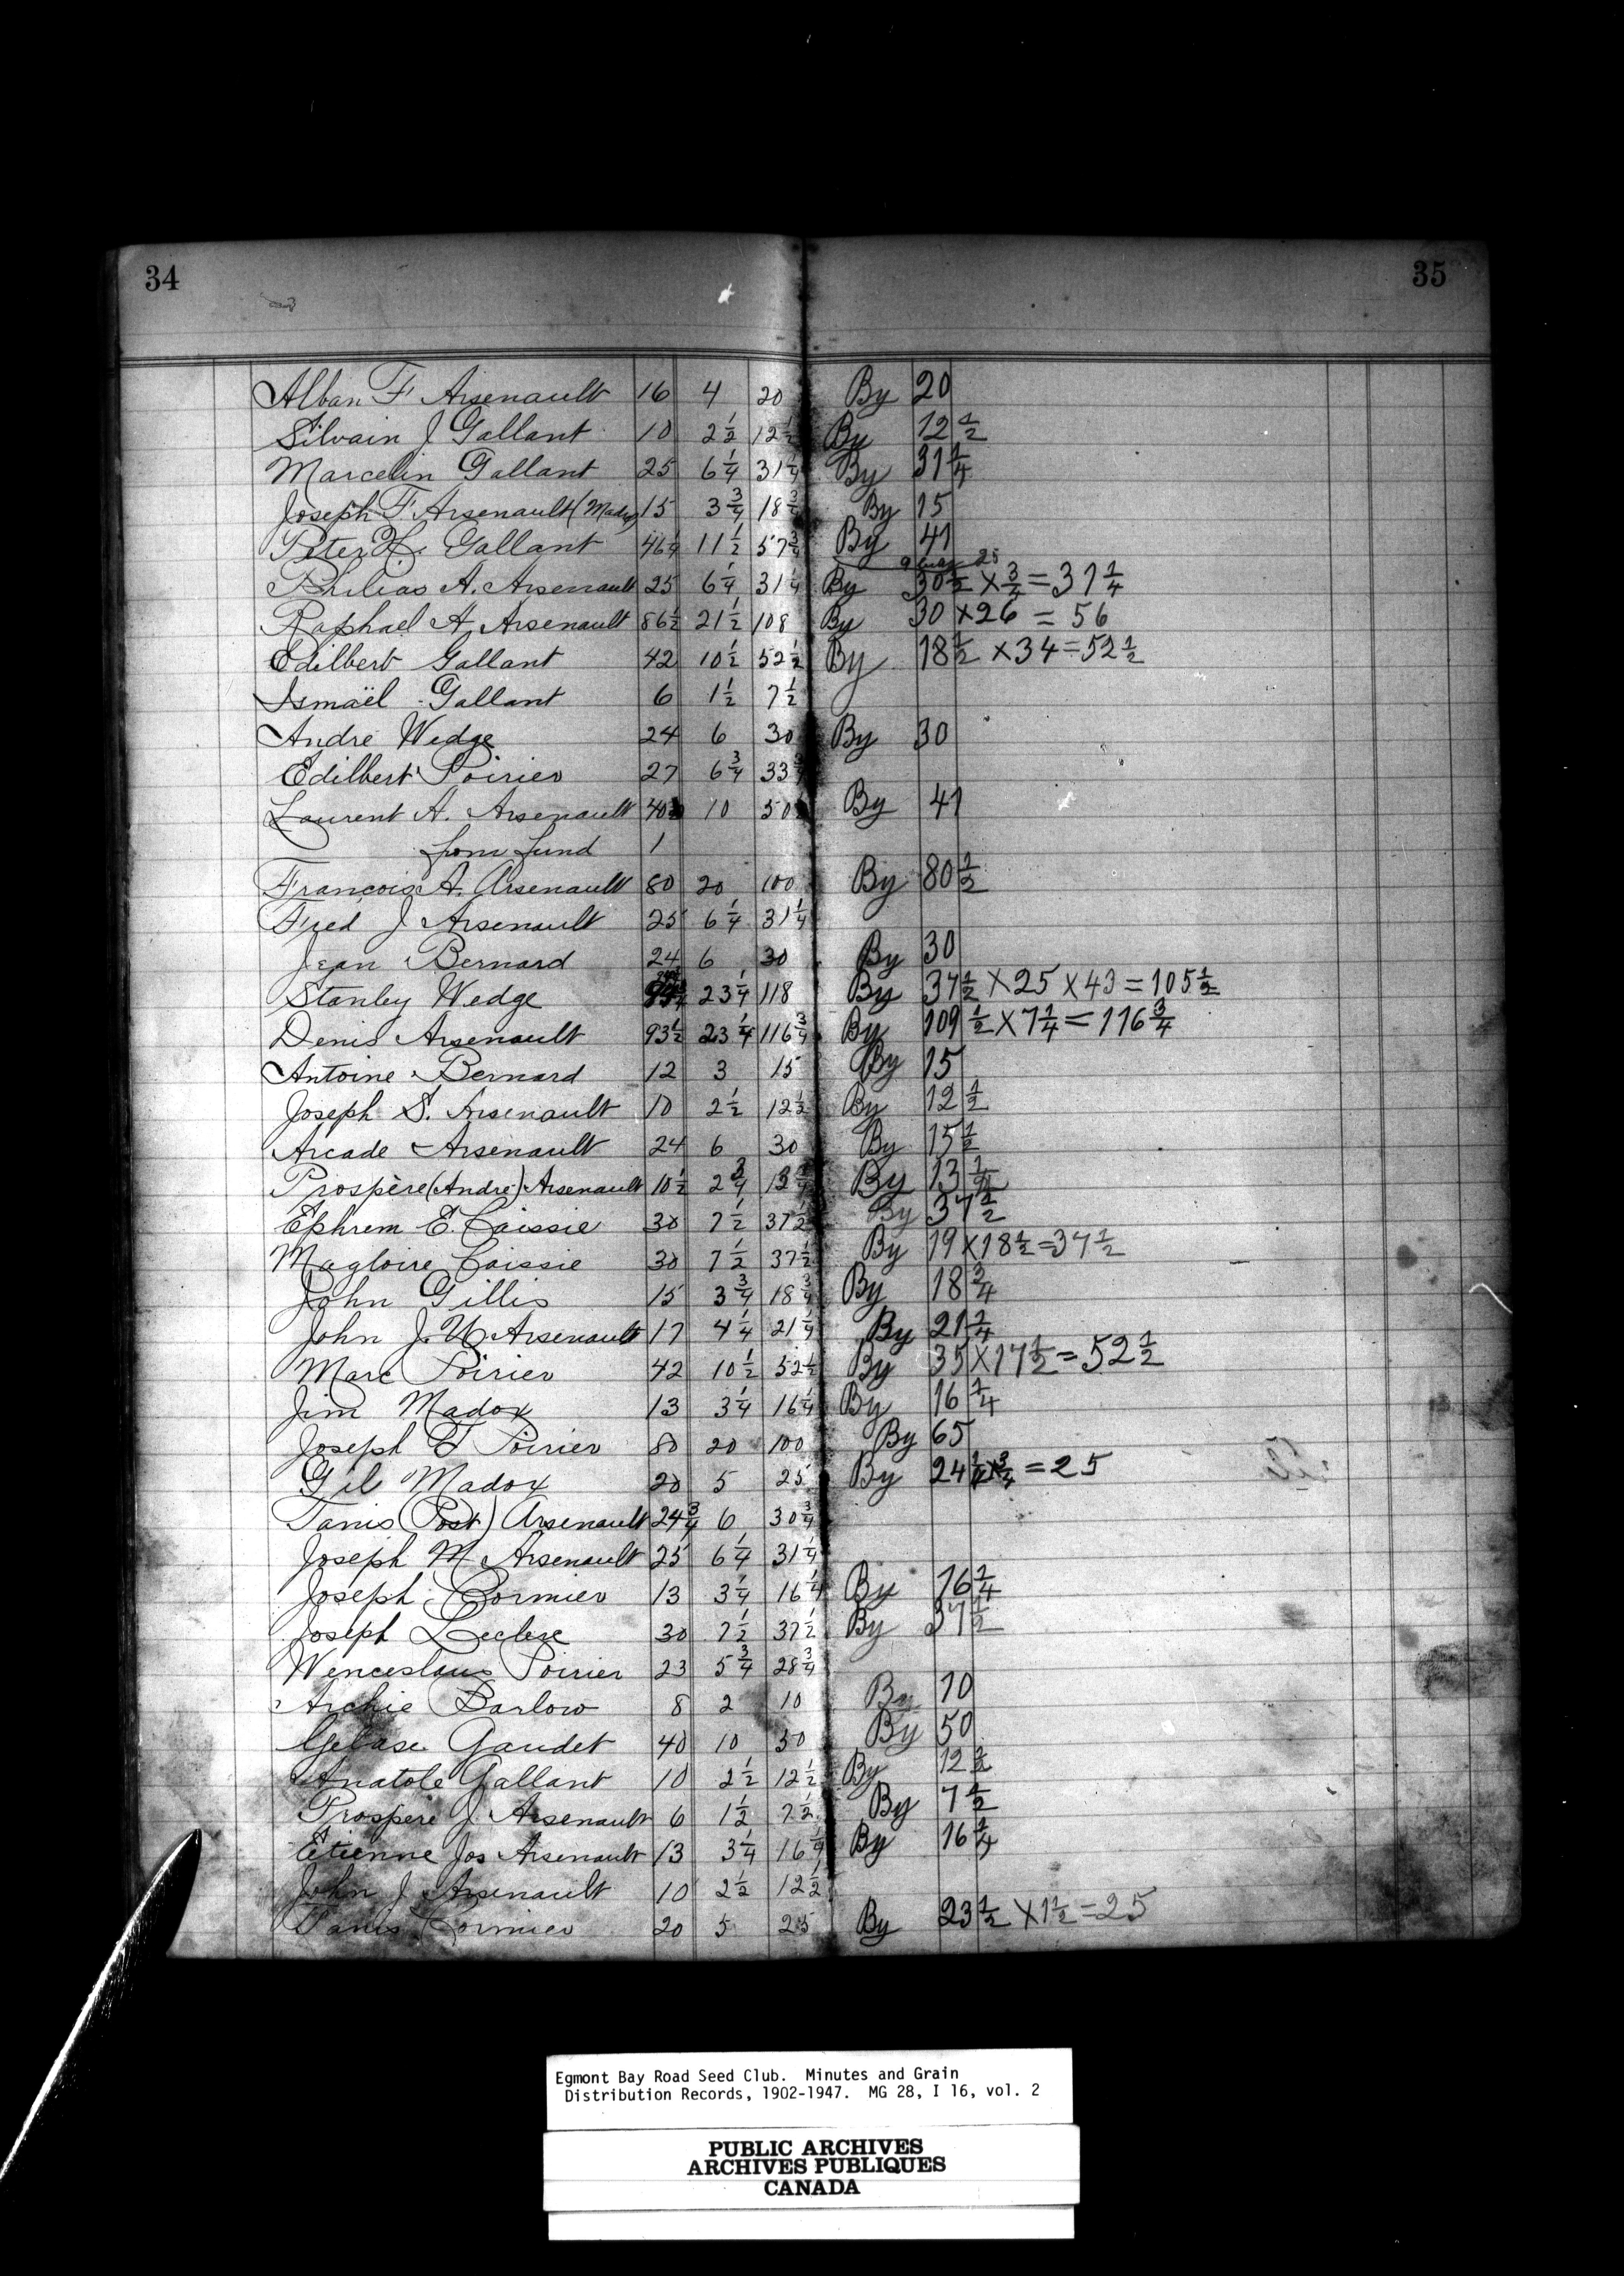 34 35
Alban F Arsenault 16 4 20 By 20
Silvain J Gallant 10 2 1/2 12 1/2 By 12 1/2
Marcelin Gallant 25 6 1/4 31 1/4 By 31 1/4
Joseph F Arsenault 15 3 3/4 18 3/4 By 15
Peter H. Gallant 46 1/4 11 1/2 57 3/4 By 41
25
Philias A. Arsenault 25 6 1/4 31 1/4 By 30 1/2 × 3/4 = 31 1/4
Raphael A. Arsenault 86 1/2 21 1/2 108 By 30 × 26 = 56
Edilbert Gallant 42 10 1/2 52 1/2 By 18 1/2 × 34 = 52 1/2
Ismaël Gallant 6 1 1/2 7 1/2
André Wedge 24 6 30 By 30
Edilbert Poirier 27 6 3/4 33 3/4
Laurent A. Arsenault 40 10 50 By 41
from fund 1
François A. Arsenault 80 20 100 By 80 1/2
Fred J Arsenault 25 6 1/4 31 1/4
Jean Bernard 24 6 30 By 30
Stanley Wedge 23 1/4 118 By 37 1/2 × 25 × 43 = 105 1/2
Denis Arsenault 93 1/2 23 1/4 116 3/4 By 109 1/2 × 7 1/4 = 116 3/4
Antoine Bernard 12 3 15 By 15
Joseph S. Arsenault 10 2 1/2 12 1/2 By 12 1/2
Arcade Arsenault 24 6 30 By 15 1/2
Prospère (André) Arsenault 10 1/2 2 3/4 By 13
Ephrem E. Caissie 30 7 1/2 37 1/2 By 37 1/2
Magloire Caissie 30 7 1/2 37 1/2 By 19 × 18 1/2 = 37 1/2
John Gillis 15 3 3/4 18 3/4 By 18 3/4
John J. U Arsenault 17 4 1/4 21 1/4 By 21 1/4
Marc Poirier 42 10 1/2 52 1/2 By 35 × 17 1/2 = 52 1/2
Jim Madox 13 3 1/4 16 1/4 By 16 1/4
Joseph F Poirier 80 20 100 By 65
Gil Madox 20 5 25 By 24 = 25
Tanis (Post) Arsenault 24 3/4 6 30 3/4
Joseph M Arsenault 25 6 1/4 31 1/4
Joseph Cormier 13 3 1/4 16 1/4 By 16 1/4
Joseph Leclerc 30 7 1/2 37 1/2 By 37 1/2
Wenceslaus Poirier 23 5 3/4 28 3/4
Archie Barlow 8 2 10 By 10
Gelase Gaudet 40 10 50 By 50
Anatole Gallant 10 2 1/2 12 1/2 By 12 1/2
Prospère J. Arsenault 6 1 1/2 7 1/2 By 7 1/2
Etienne Jos Arsenault 13 3 1/4 16 1/4 By 16 1/4
John J Arsenault 10 2 1/2 12 1/2
Tanis Cormier 20 5 25 By 23 1/2 × 1 1/2 = 25
Egmont Bay Road Seed Club. Minutes and Grain
Distribution Records, 1902-1947. MG 28, I 16, vol. 2
PUBLIC ARCHIVES
ARCHIVES PUBLIQUES
CANADA